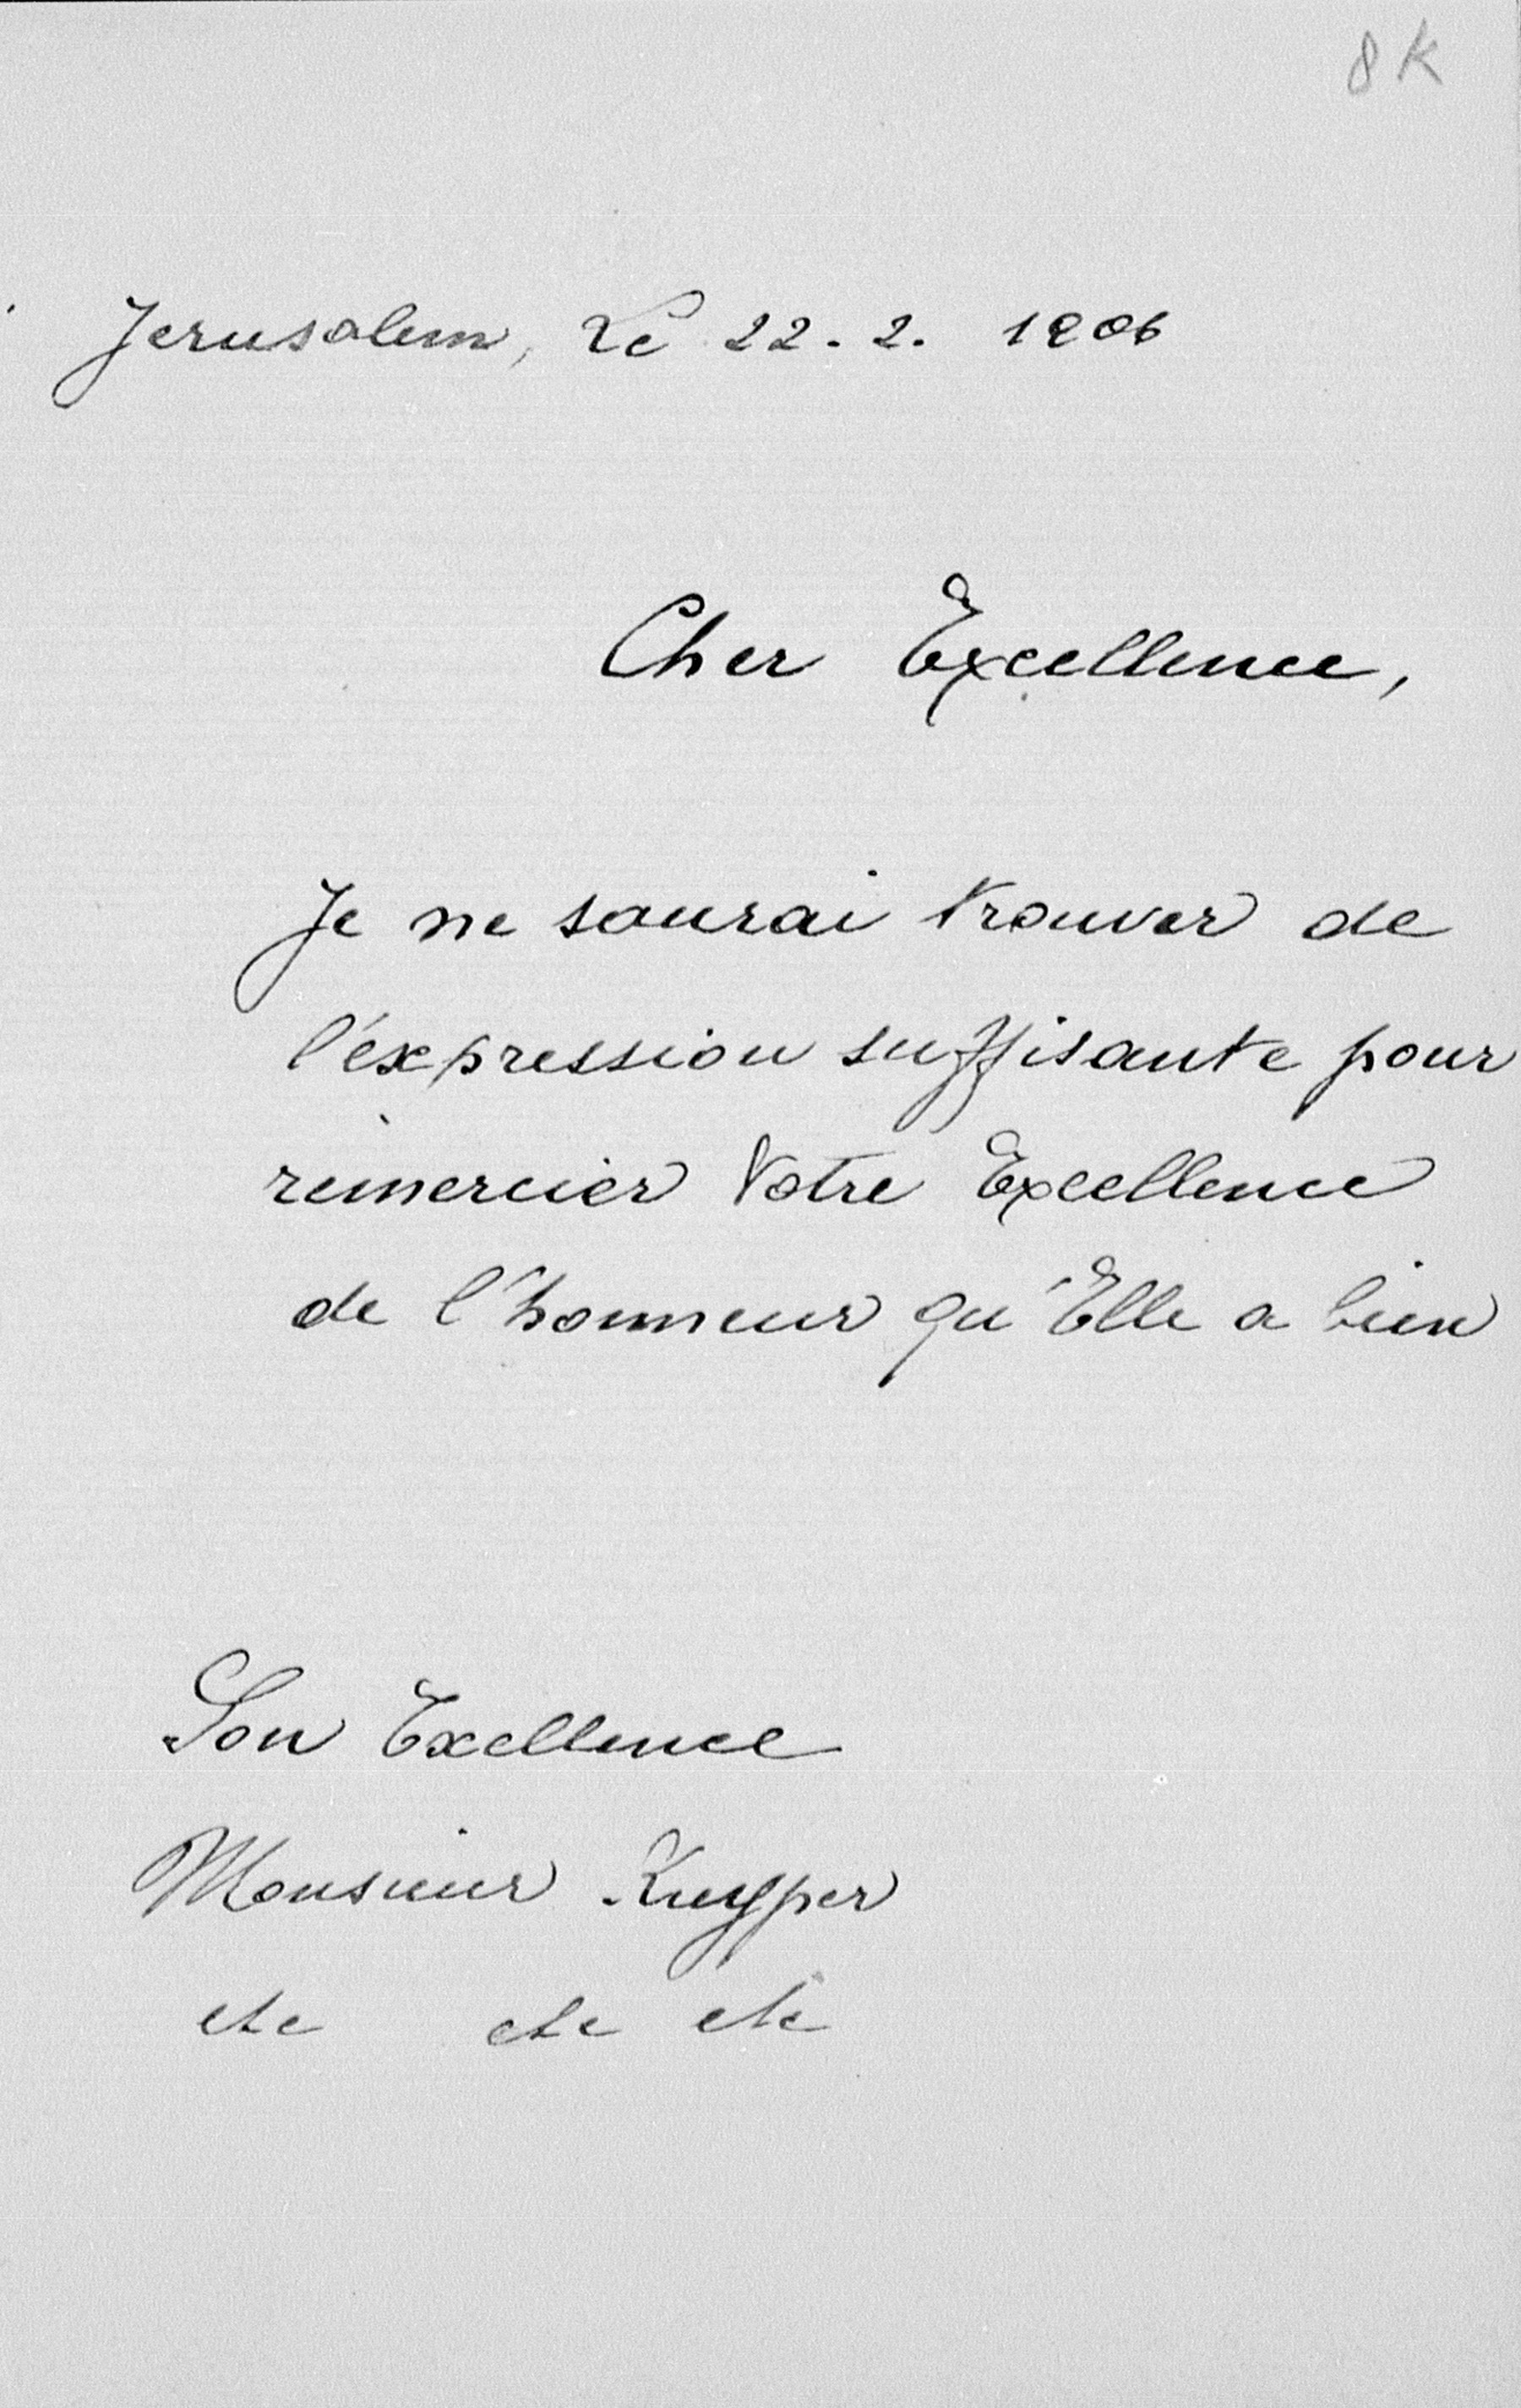 8 K
Jerusalem, Le 22. 2. 1906
Cher Excellence,
Je ne saurai trouver de
l'éxpression suffisante pour
remercier Votre Excellence
de l'honneur qu'Elle a bien
Son Exellence
Monsieur Kuyper
etc etc etc